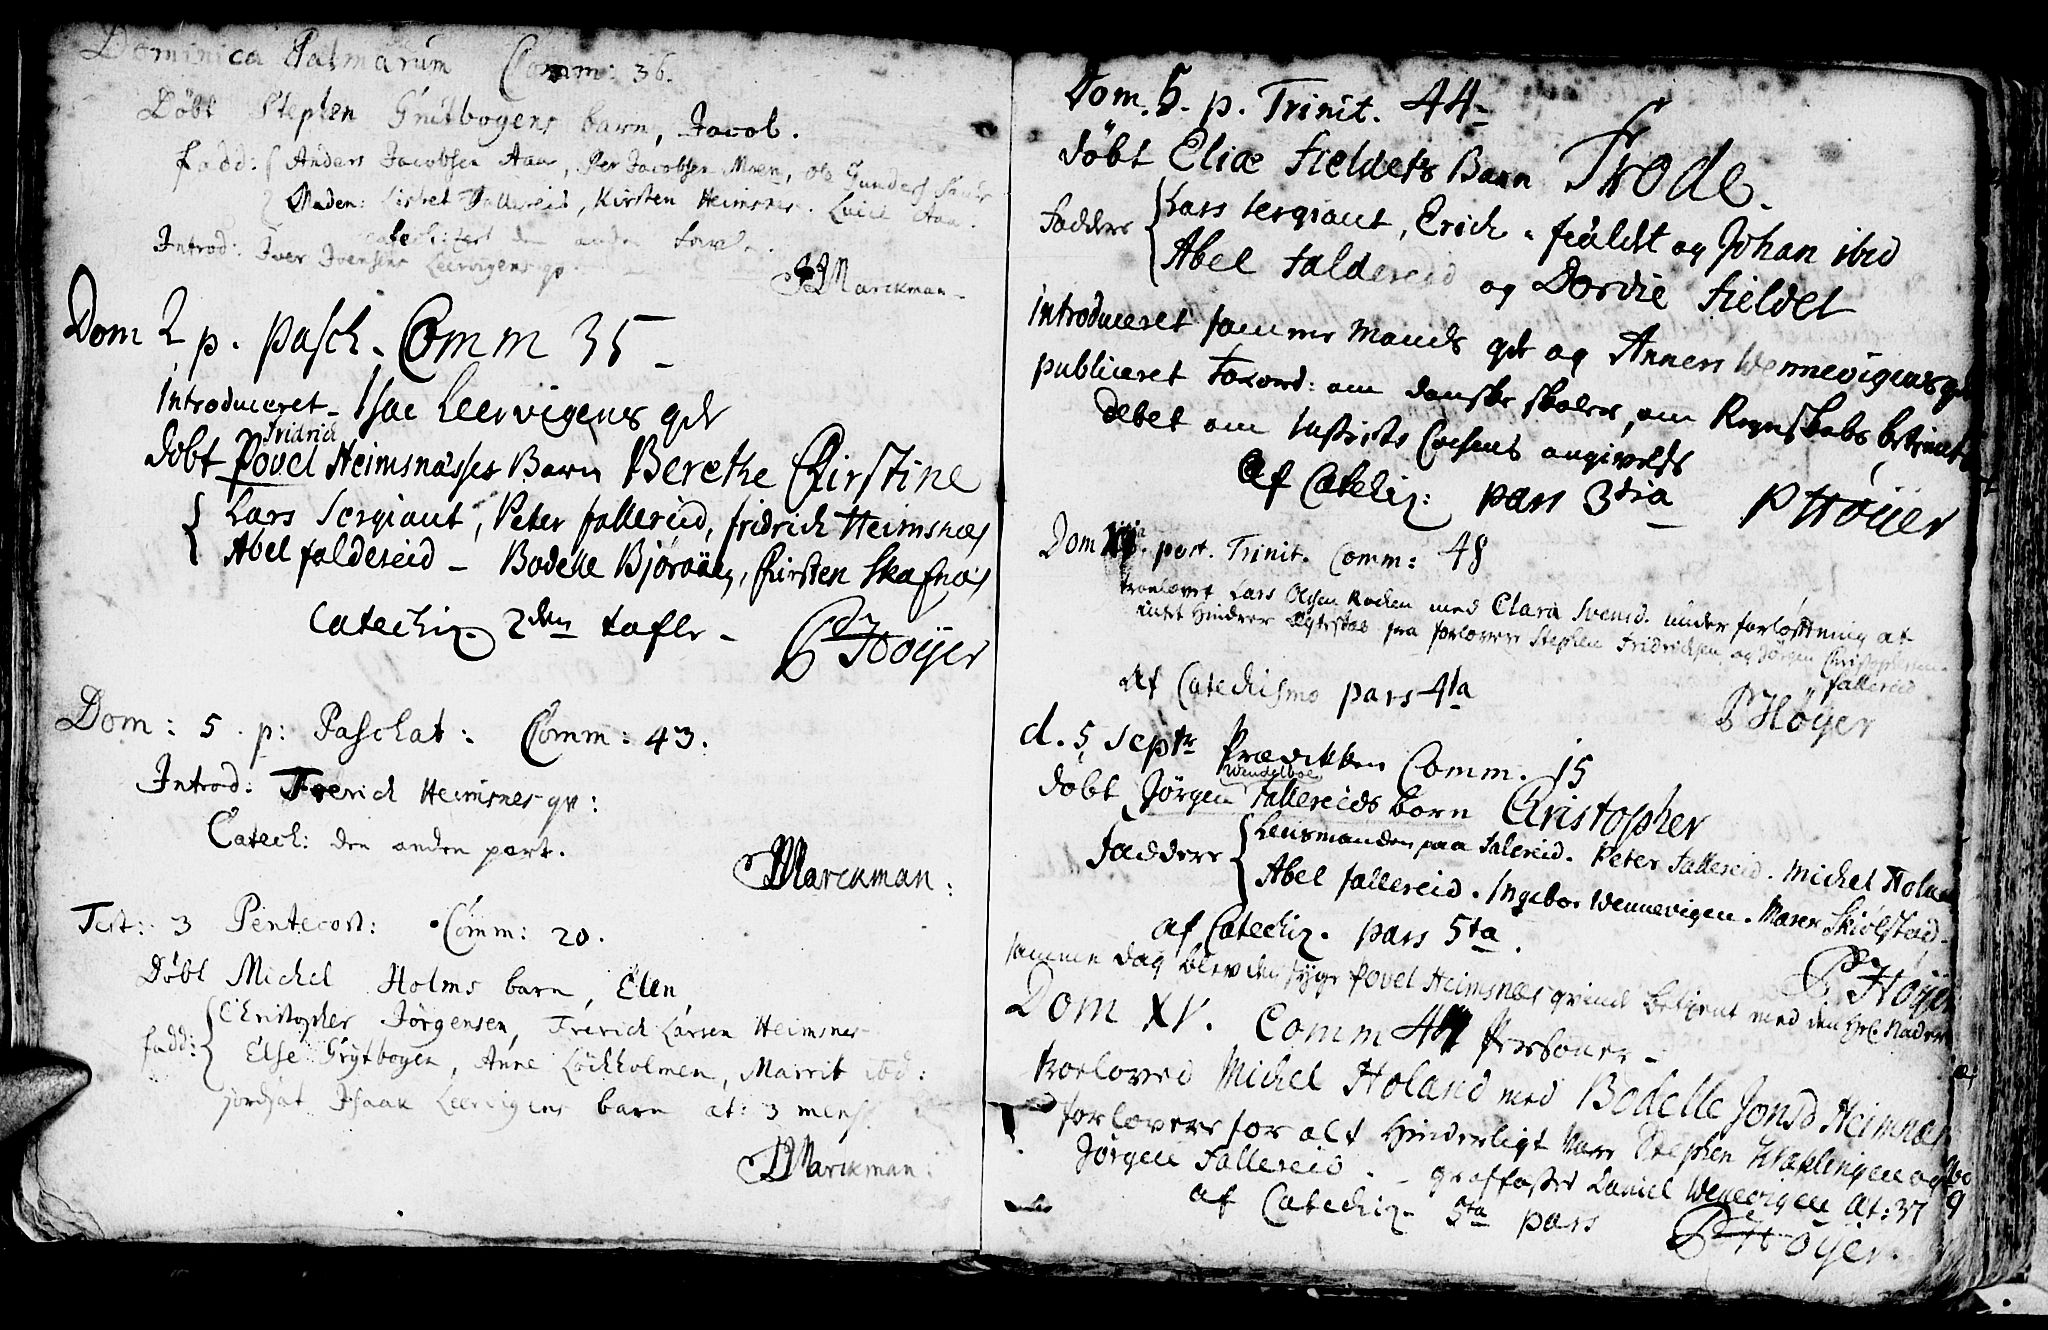 Dominica Palmarum Comm: 36.
Døbt Stephen Grütbogens barn, Jacob.
fadd: Anders Jacobsen Aar, Per Jacobsen Moen, Ole Gunders
Maden: Lisbet Fallereid, Kirsten Heimsnes. Lucie Aaa.
catechizert den anden tavle.
Introd: Iver Ivensens Leervigens qv.
JMarckman
Dom 2 p. pasch. Comm 35 -
Introduceret - Isac Leervigens qvd
fridrich
døbt Povel Heimsnæsses Barn Berethe Chirstine
Lars Sergiant, Peter fallereid, fridrich Heimsnæs
Abel faldereid - Bodelle Bjøröen, Chirsten Skafnæs
Catechiz. 2den tafle -
P Høyer
Dom: 5. p: Paschat: Comm: 43.
Introd: Frerich Heimsnes qv:
Catech: den anden part.
JMarckman:
Fest: 3 Pentecost: Comm: 20.
Døbt Michel Holms barn, Elen,
fadd: Christopher Jörgensen, Frerich Larsen Heimsnes
Else Grytbogen, Anne Löchholmen, Marrit ibd:
jordsat Isaak Leervigens barn at: 3 mens:
JMarckman:
Dom. 5. p. Trinit. 44 -
døbt Eliæ fieldets Barn Frode.
Faddere Lars Sergiant, Erich fieldet og Johan ibid
Abel faldereid og Dordie fieldet
Introduceret samme Mands qvd og Anners Wennevigens qvd
publiceret Forord: om danske skoler, om Regnskabs betient
debet om Justits Cassens angivelse
af Catechiz: pars 3tia PHøyer
Dom post. Trinit. Comm: 48
troelovet Lars Olsen Rochen med Clara Svensd. under forløfttning at
intet Hindrer Egteskab fra forlovere Stephen Fridrichsen, og Jörgen Christophersen
fallereid
af Catechismo pars 4ta
PHøyer
d. 5 Septr Prædikken Comm. 15
Wendelboe
døbt Jørgen Fallereids børn Christopher
Faddere Lensmanden paa Falereid. Peter Fallereid. Michel Holm
Abel fallereid. Ingebor Wennevigen. Maren Skiølstad.
af Catechiz. pars 5ta.
P. Høyer
samme dag blev den syge Povel Heimsnæs qvinde betient med den Hel. Nadver
Dom XV. Comm 44 Personer -
troeloved Michel Holand med Bodelle Jonsd Heimnæs
forlovere for alt Hinderligt vare Stephen Kraklingen og
Jørgen Fallereid. - graffæsted Daniel Wennevigen æt: 37
af Catechiz. 5ta pars P Høyer.